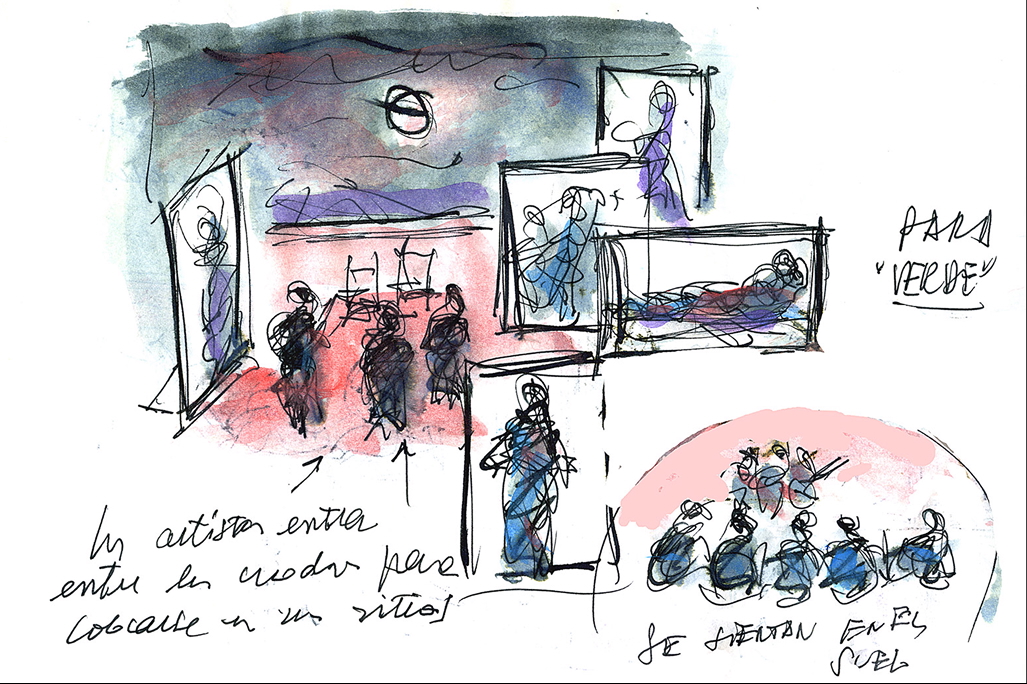 PARA
"VERDE"
los artistas entra
entre los cuadros para
colocarse en sus sitios
SE SIENTAN EN EL
SUELO